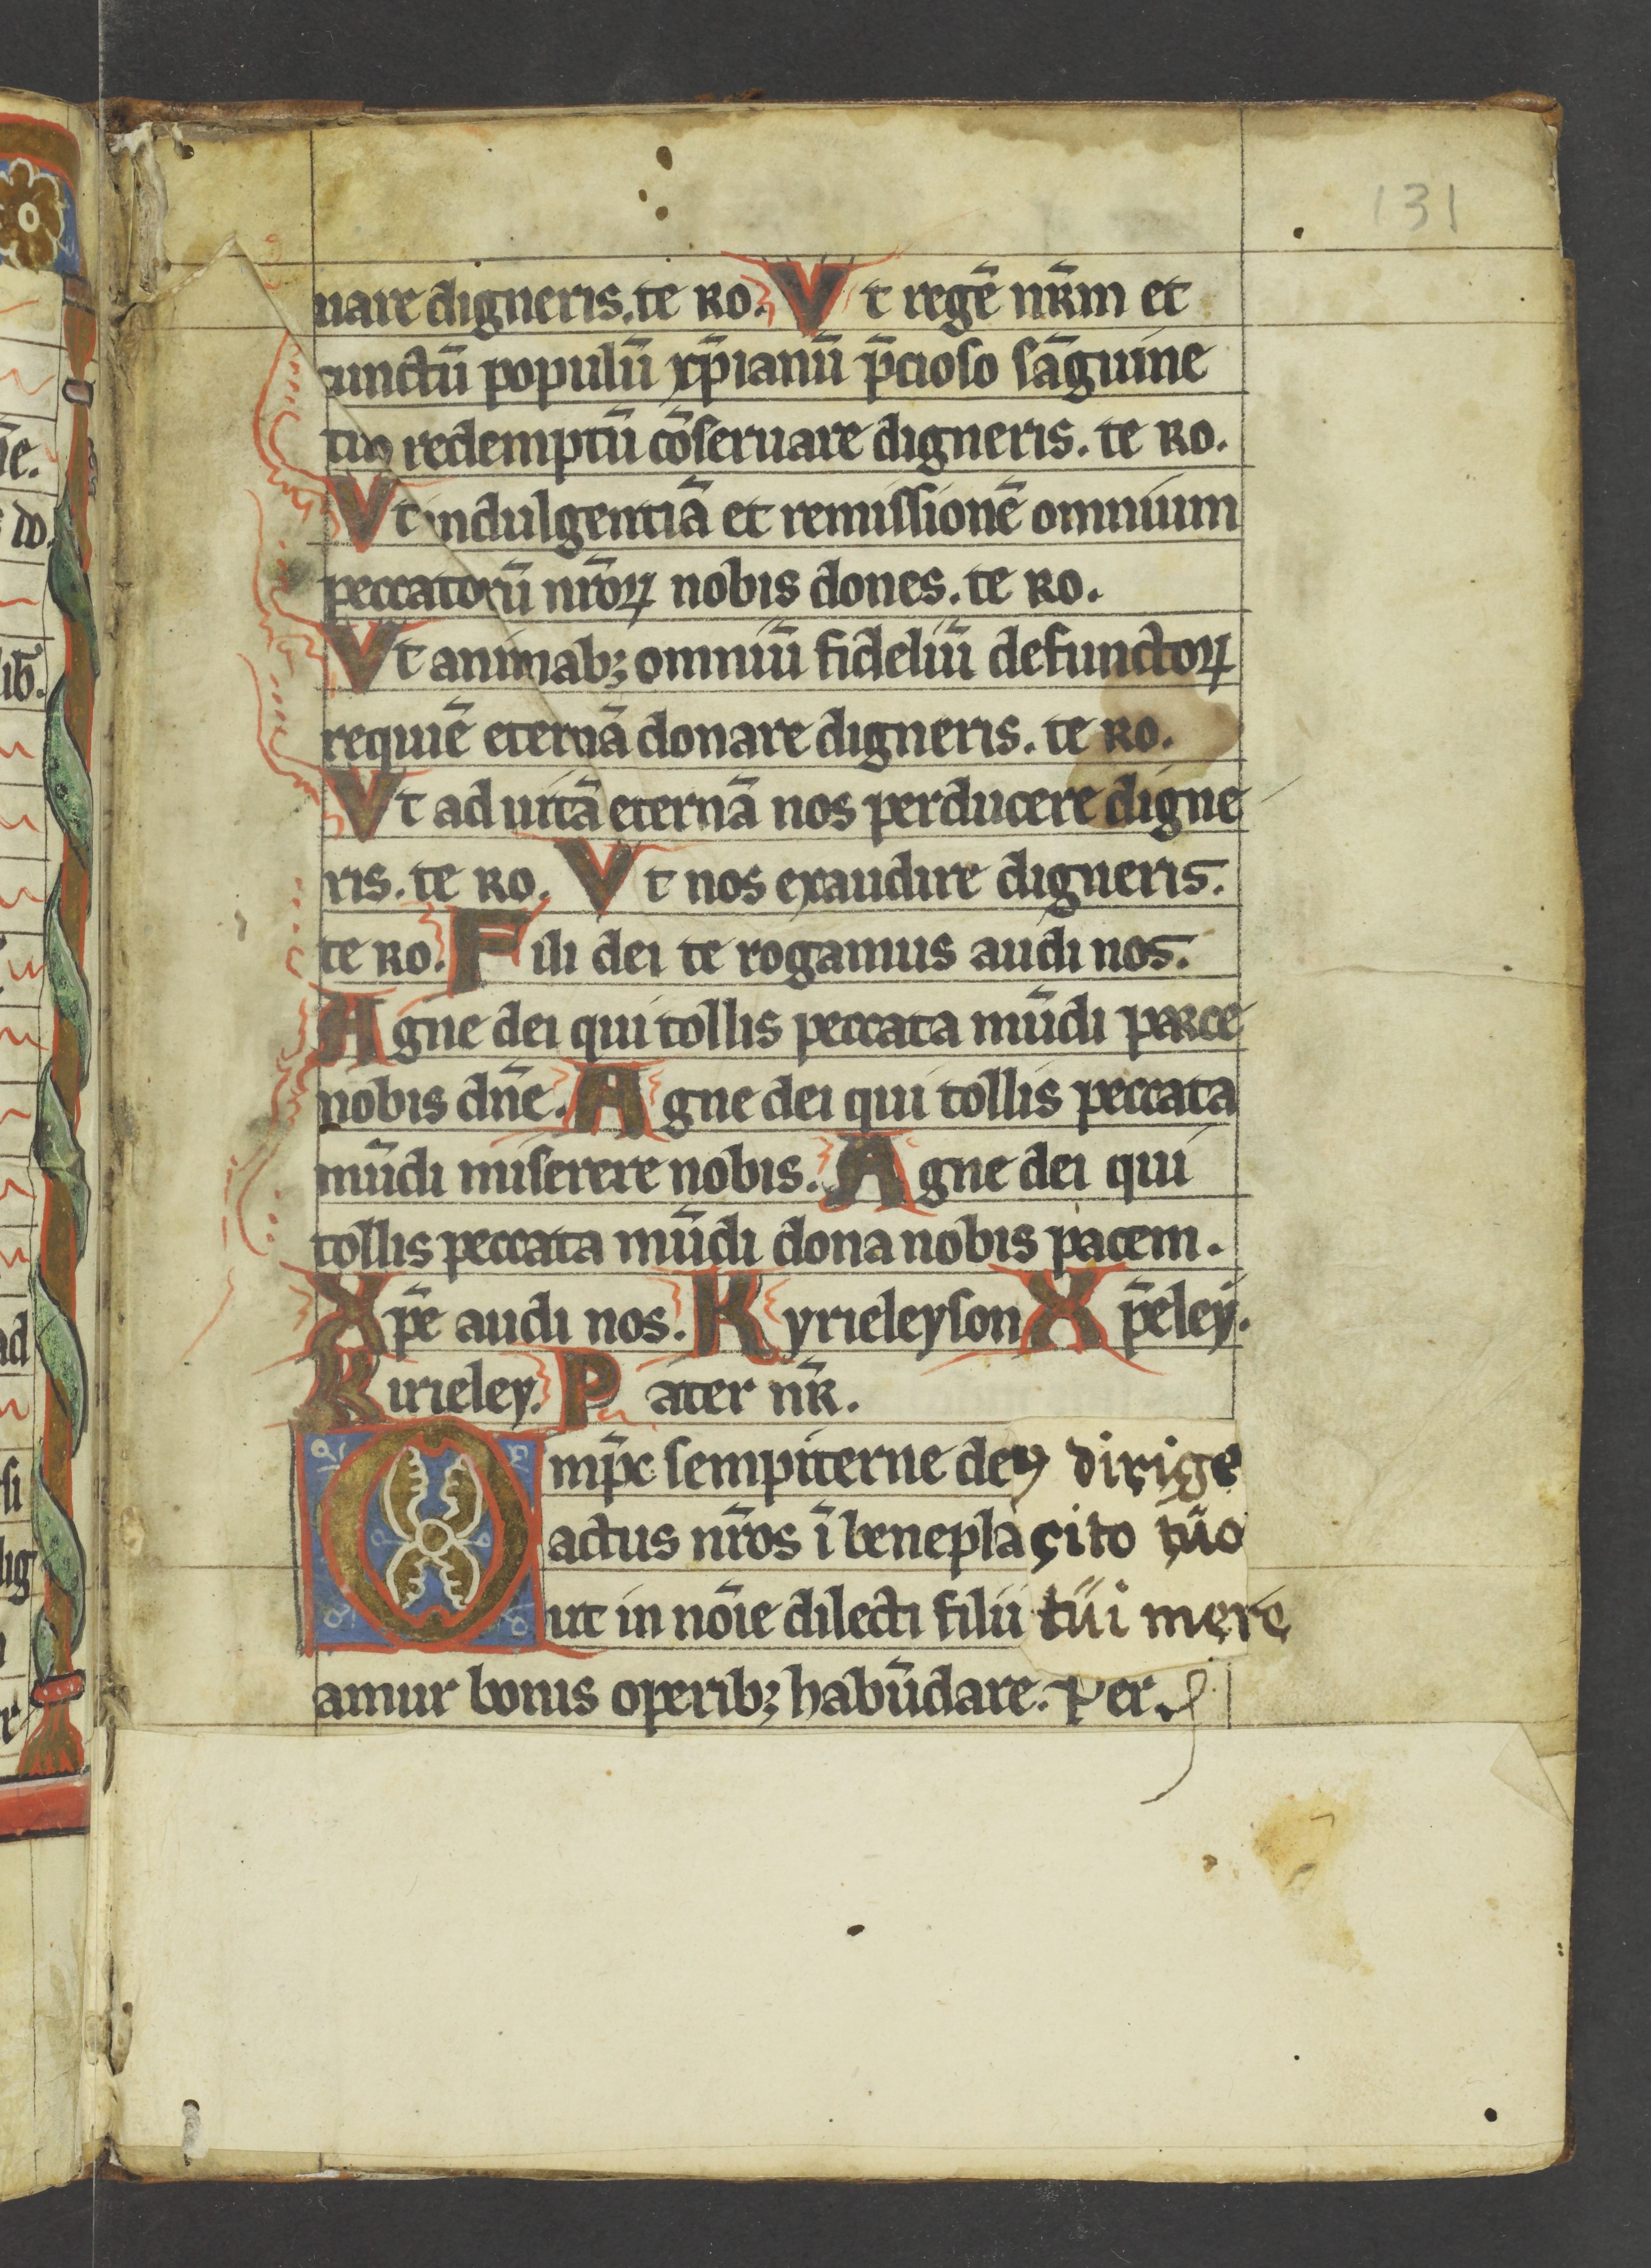 131
uare digneris. te Ro. Vt regē nr̄m et
cunctū populū xp̄ianū p̄cioso sāguine
tuo redemptū cōseruare digneris. te Ro.
Vt indulgentiā et remissionē omnium
peccatorū nr̄oꝝ nobis dones. te Ro.
Vt animabꝫ omniū fideliū defunctoꝝ
requiē eternā donare digneris. te Ro.
Vt ad uitā eternā nos perducere digne
ris. te Ro. Vt nos exaudire digneris.
te Ro. Fili dei te rogamus audi nos.
Agne dei qui tollis peccata mūdi parce
nobis dn̄e. Agne dei qui tollis peccata
mūdi miserere nobis. Agne dei qui
tollis peccata mūdi dona nobis pacem.
Xp̄e audi nos. Kyrieleyson Xp̄eley.
Kirieley. Pater nr̄.
Omp̄c sempiterne deꝰ dirige
actus nr̄os ī beneplacito tuo
ut in noīe dilecti filii tui mere
amur bonis operibꝫ habūdare. Per.